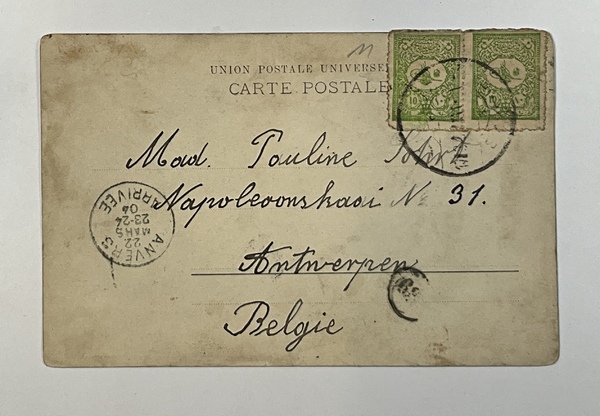 11
UNION POSTALE UNIVERSE
CARTE POSTALE
10 10
Mad. Pauline
Napoleonskaai No 31.
Antwerpen
Belgie
ANVERS
22
MARS
23-24
04
ARRIVÉE